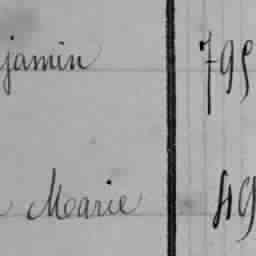 jamin 795
Marie 49